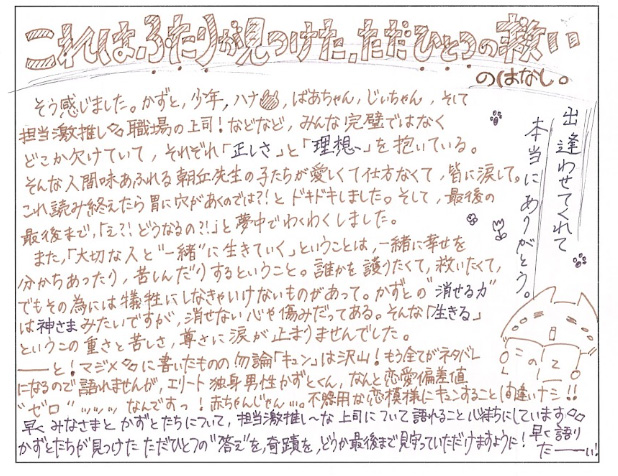 これは、ふたりが見つけた、ただひとつの救い
のはなし。
そう感じました。かずと、少年、ハナ、ばあちゃん、じいちゃん、そして
担当激推し 職場の上司！などなど、みんな完璧ではなく
どこか欠けていて、それぞれ「正しさ」と「理想」を抱いている。
そんな人間味あふれる朝丘先生の子たちが愛しくて仕方なくて、皆に涙して。
これ読み終えたら胃に穴があくのでは?!とドキドキしました。そして、最後の
最後まで、「え?!どうなるの?!」と夢中でわくわくしました。
また、「大切な人と"一緒"に生きていく」ということは、一緒に幸せを
分かちあったり、苦しんだりするということ。誰かを護りたくて、救いたくて、
でもその為には犠牲にしなきゃいけないものがあって。かずとの"消せる力"
は神さまみたいですが、消せない心や傷みだってある。そんな「生きる」
というこの重さと苦しさ、尊さに涙が止まりませんでした。
――と！マジメに書いたものの勿論「キュン」は沢山！もう全てがネタバレ
になるので語れませんが、エリート独身男性かずとくん、なんと恋愛偏差値
"ゼロ"ッッッなんですっ！赤ちゃんじゃん…。不器用な恋模様にキュンすること間違いナシ!!
早くみなさまとかずとたちについて、担当激推し〜な上司について語れること心待ちにしています
かずとたちが見つけた ただひとつの"答え"を、奇蹟を、どうか最後まで見守っていただけますように！早く語り
たーーい！
出逢わせてくれて
本当にありがとう。